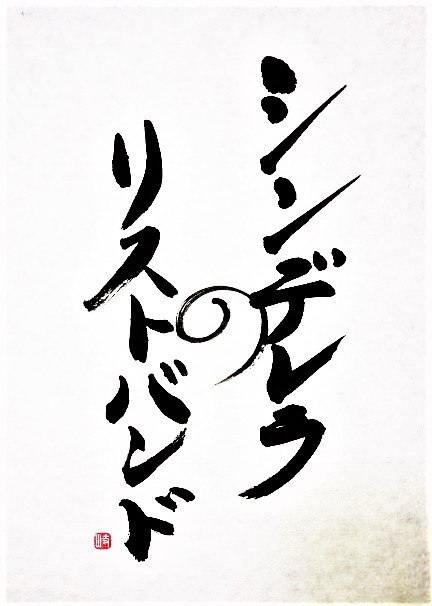 シンデレラ
の
リストバンド